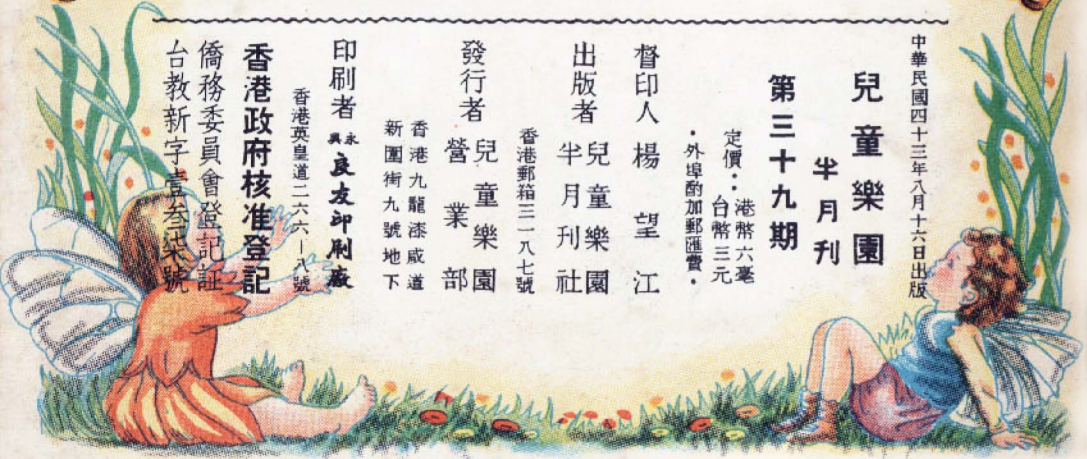 中華民國四十三年八月十六日出版
兒童樂園
半月刊
第三十九期
定價：港幣六毫
台幣三元
・外埠酌加郵匯費・
督印人 楊望江
出版者 兒童樂園
半月刊社
香港郵箱三一八七號
發行者 兒童樂園
營業部
香港九龍漆咸道
新圍街九號地下
印刷者 永興良友印刷廠
香港英皇道二六六—八號
香港政府核准登記
僑務委員會登記証
台教新字壹叁柒號